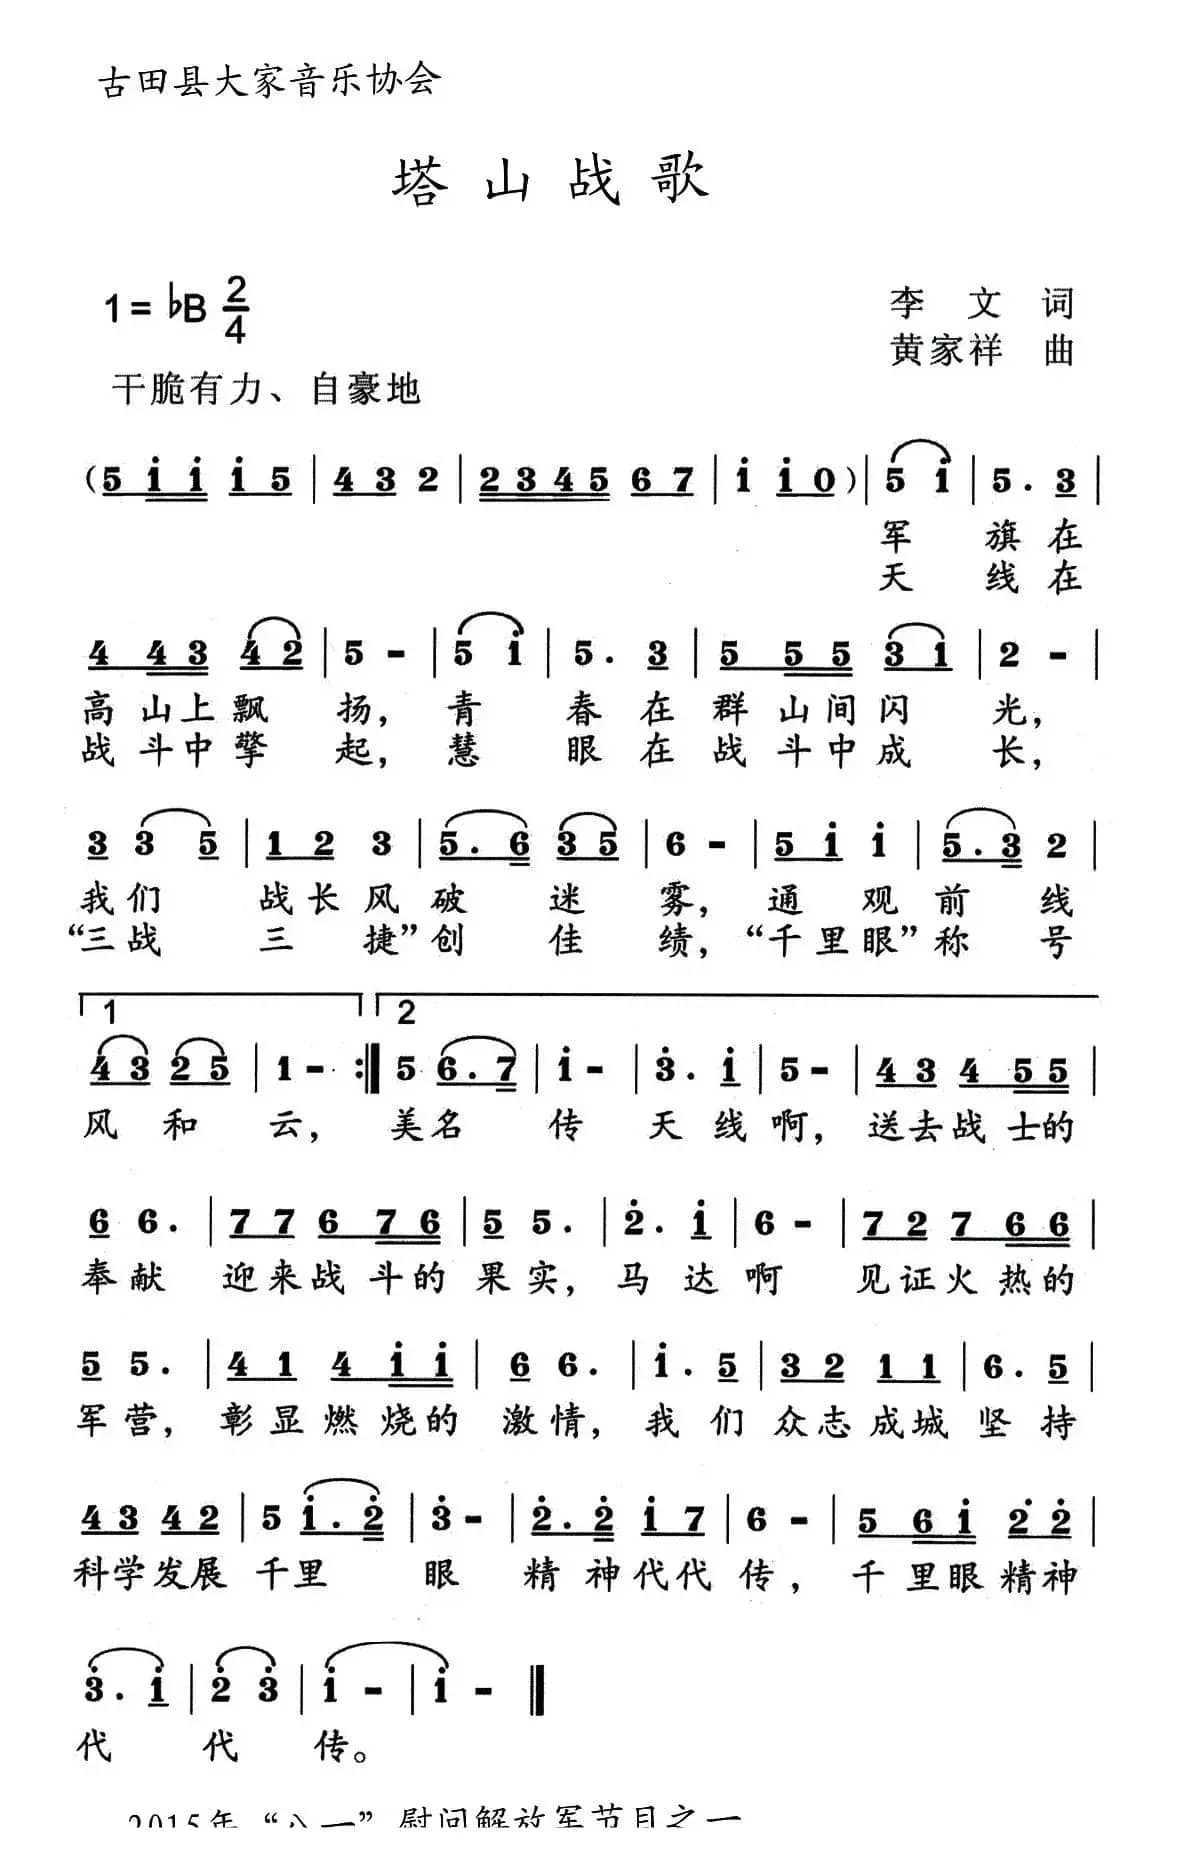 古田县大家音乐协会
塔山战歌
1=♭B 2/4
李文 词
黄家祥 曲
干脆有力、自豪地
(5 i i i 5 | 4 3 2 | 2 3 4 5 6 7 | i i 0) | 5 i | 5. 3 |
军 旗 在
天 线 在
4 4 3 4 2 | 5 - | 5 i | 5. 3 | 5 5 5 3 1 | 2 - |
高山上飘 扬, 青 春在群山间闪 光,
战斗中擎 起, 慧 眼在战斗中成 长,
3 3 5 | 1 2 3 | 5. 6 3 5 | 6 - | 5 i i | 5. 3 2 |
我们 战长风破 迷 雾, 通观前线
“三战 三 捷”创 佳 绩, “千里眼”称 号
1 2
4 3 2 5 | 1 - :| 5 6. 7 | i - | 3. i | 5 - | 4 3 4 5 5 |
风 和 云, 美名 传 天线啊, 送去战士的
6 6. | 7 7 6 7 6 | 5 5. | 2. i | 6 - | 7 2 7 6 6 |
奉献 迎来战斗的果实, 马达啊 见证火热的
5 5. | 4 1 4 i i | 6 6. | i. 5 | 3 2 1 1 | 6. 5 |
军营, 彰显燃烧的 激情, 我们众志成城坚持
4 3 4 2 | 5 i. 2 | 3 - | 2. 2 i 7 | 6 - | 5 6 i 2 2 |
科学发展 千里 眼 精神代代 传, 千里眼精神
3. i | 2 3 | i - | i - ||
代 代 传。
2015年“八一”慰问解放军节目之一